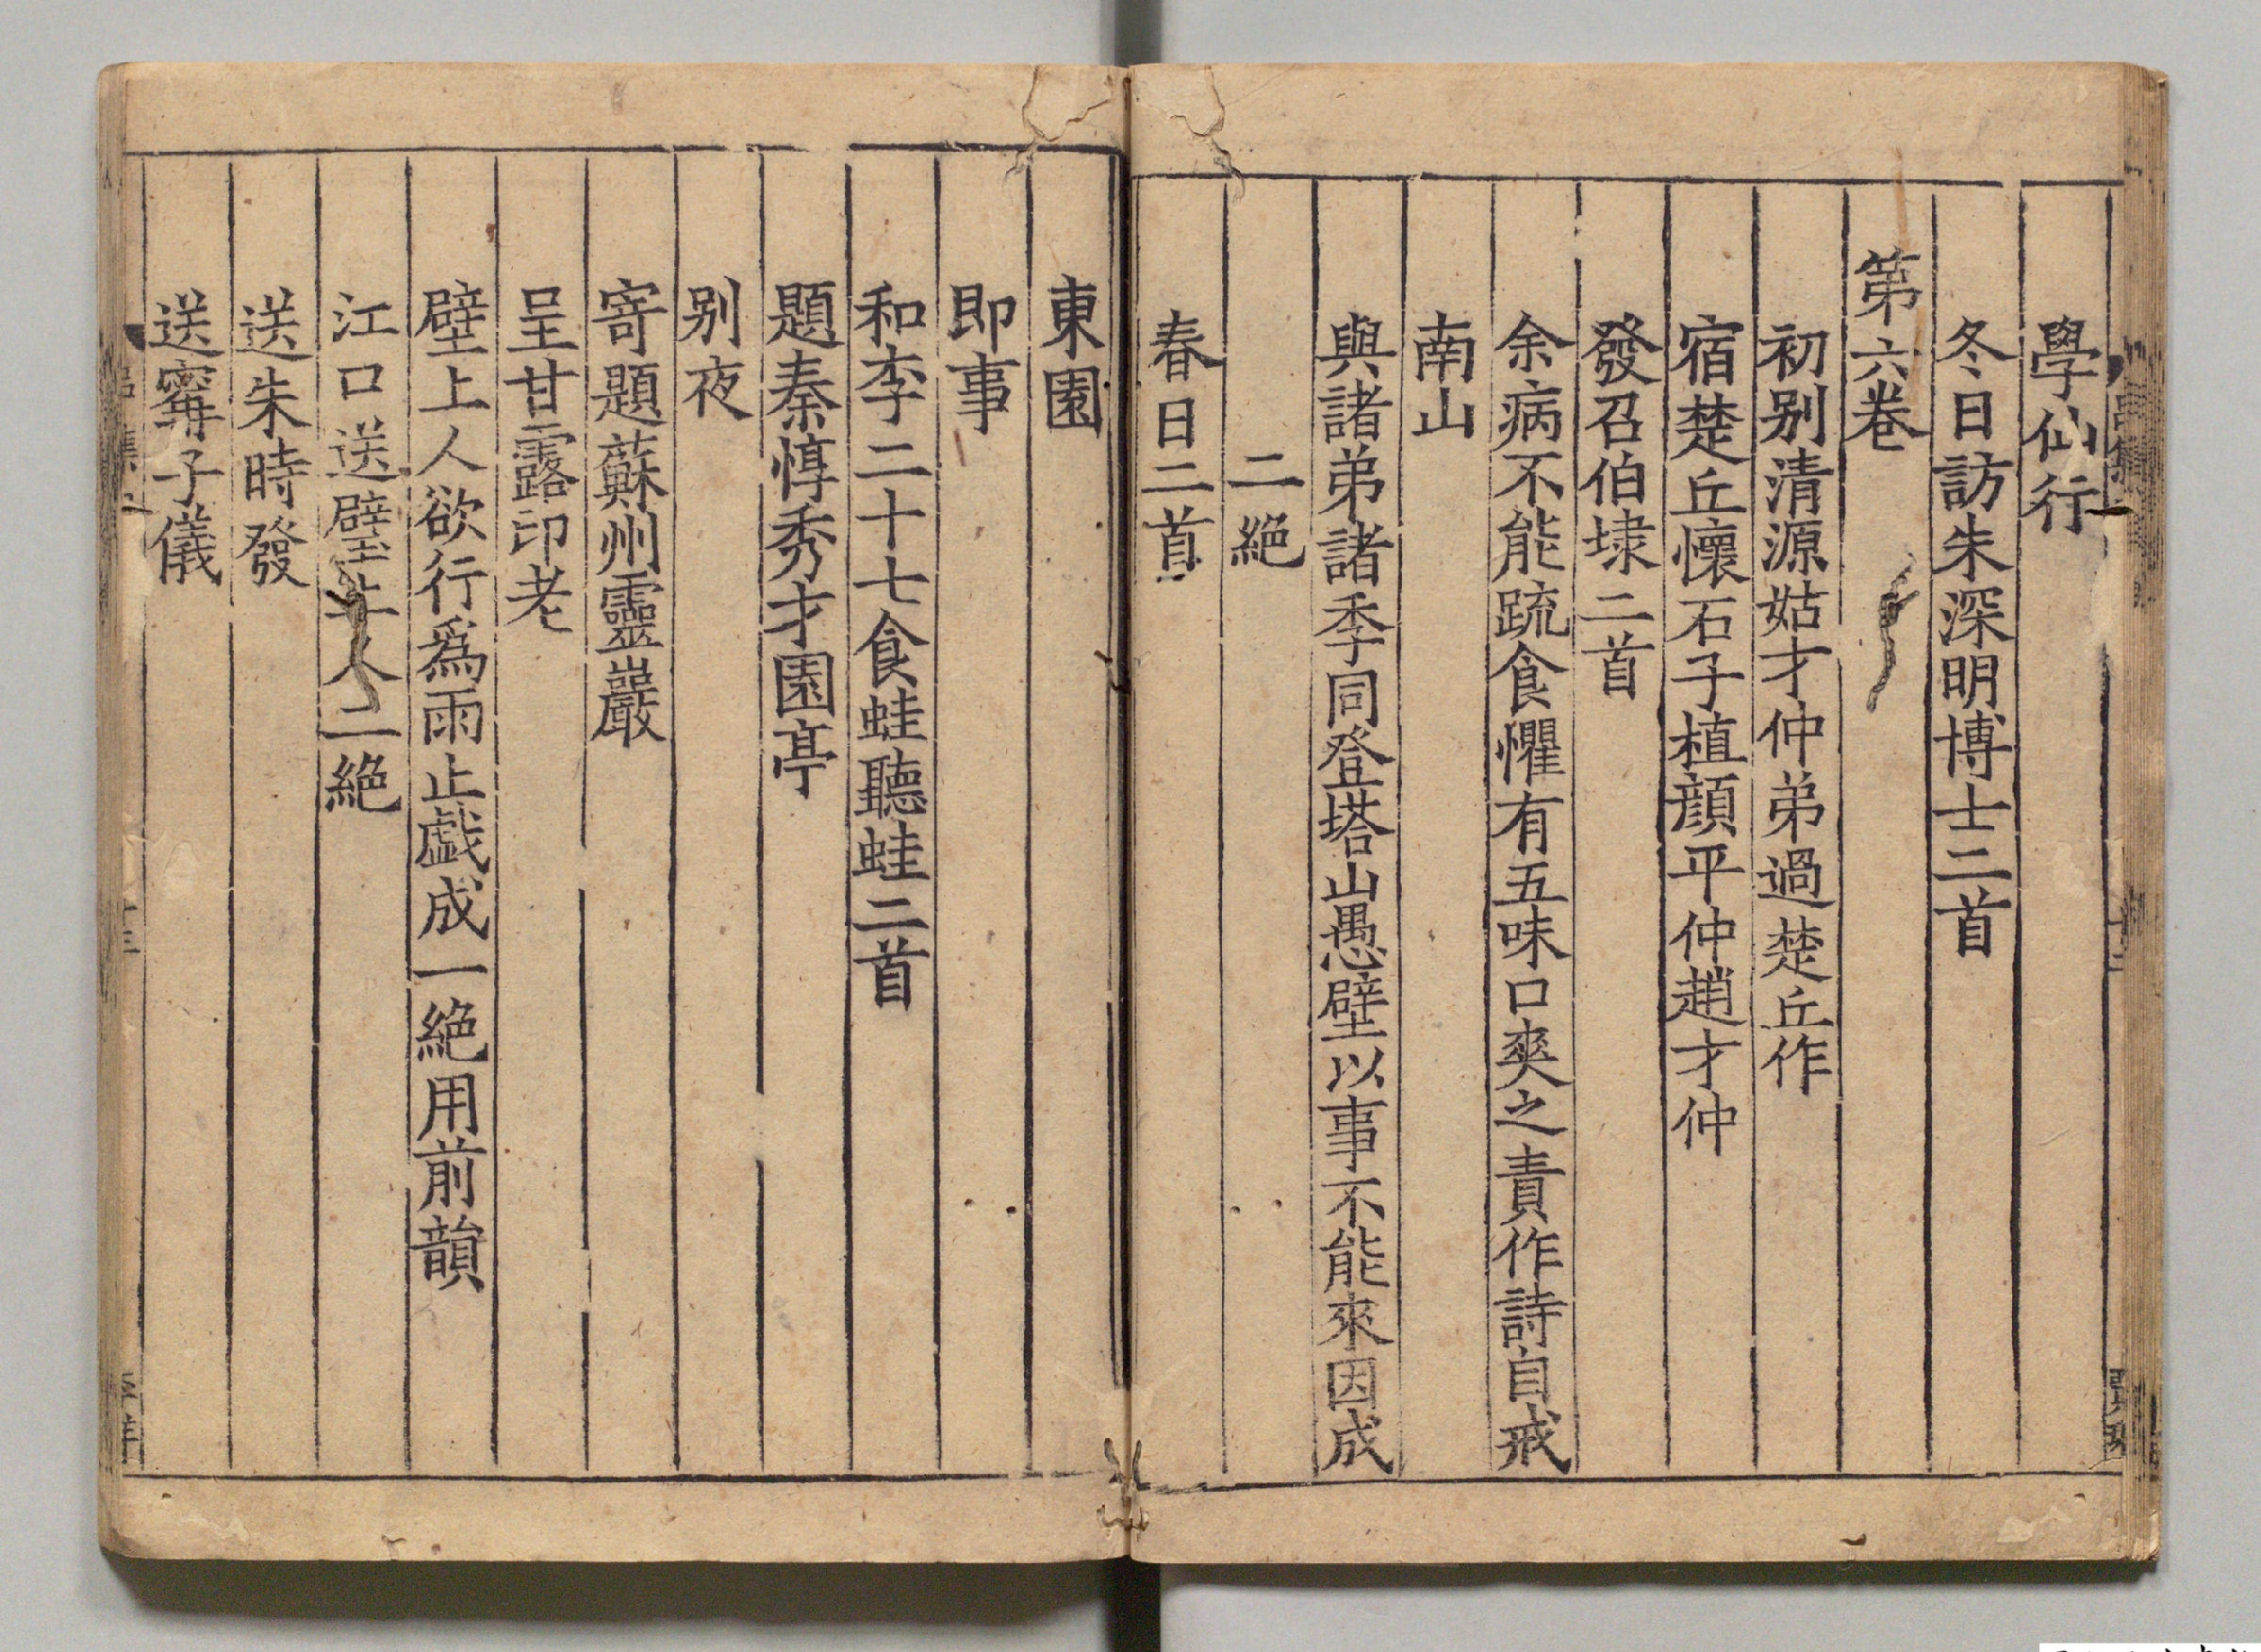 學仙行
冬日訪朱深明博士二首
第六卷
初别清源姑才仲弟過楚丘作
宿楚丘懷石子植顔平仲趙才仲
發召伯埭二首
余病不能疏食懼有五味口爽之責作詩自戒
南山
與諸弟諸季同登塔山愚壁以事不能來因成
二絶
春日二首
東園
即事
和李二十七食蛙聽蛙二首
題秦惇秀才園亭
别夜
寄題蘇州靈巖
呈甘露印老
壁上人欲行爲雨止戯成一絶用前韻
江口送璧上人二絶
送朱時發
送寗子儀